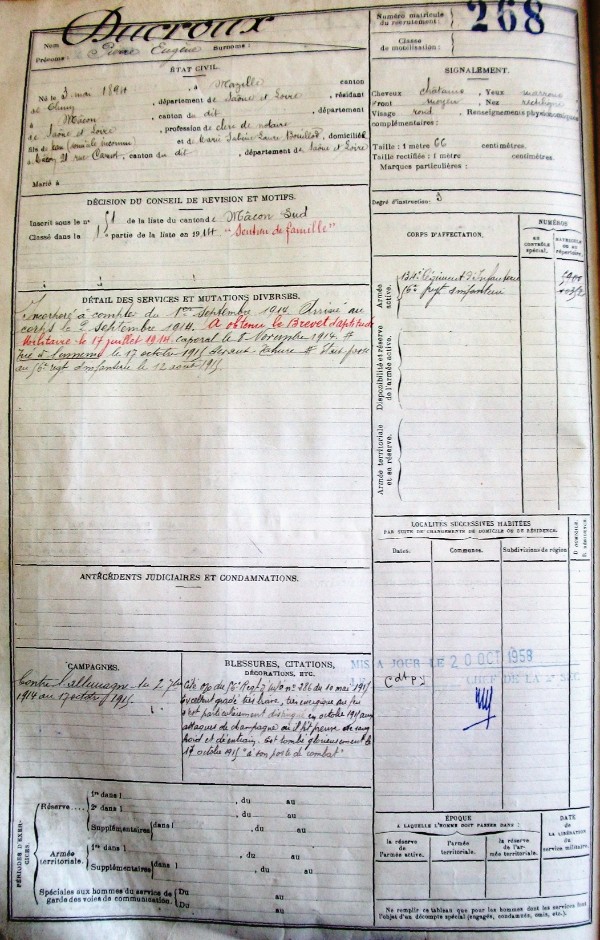 Nom Ducroux
Prénoms : Pierre Eugène Surnoms :
Numéro matricule du recrutement :
268
Classe de mobilisation :
ÉTAT CIVIL.
Né le 3 mai 1894, à Mazille canton
de Cluny, département de Saône et Loire, résidant
à Mâcon, canton du dit, département
de Saône et Loire, profession de clerc de notaire
fils de et de Marie domiciliés
à Mâcon, 21 rue Carnot, canton du dit, département de Saône et Loire
Marié à
DÉCISION DU CONSEIL DE RÉVISION ET MOTIFS.
Inscrit sous le n° 51 de la liste du canton de Mâcon Sud
Classé dans la 1e partie de la liste en 1914 "Soutien de famille"
DÉTAIL DES SERVICES ET MUTATIONS DIVERSES.
Incorporé à compter du 1er Septembre 1914. Arrivé au
corps le 2 Septembre 1914. A obtenu le Brevet d'aptitude
Militaire le 17 juillet 1914. caporal le 8 Novembre 1914. #
Tué à l'ennemi le 17 octobre 1915 devant Tahure # Etait passé
au 56e régt d'Infanterie le 12 août 1915
ANTÉCÉDENTS JUDICIAIRES ET CONDAMNATIONS.
CAMPAGNES.
Contre l'allemagne du 2 7bre
1914 au 17 octobre 1915
BLESSURES, CITATIONS,
DÉCORATIONS, ETC.
Cité du 56e Regt n° 386 du 10 mai
Excellent gradé très brave, très énergique au feu
s'est particulièrement distingué en octobre 1915 aux
attaques de champagne où il fit preuve de sang
froid et d'entrain. Est tombé glorieusement le
17 octobre 1915 "à son poste de combat"
PÉRIODES D'EXERCICES.
Réserve
1re dans l , du au
2e dans l , du au
Supplémentaires dans l , du au
Armée territoriale.
1re dans l , du au
Supplémentaires dans l , du au
Spéciales aux hommes du service de garde des voies de communication.
Du au
Du au
SIGNALEMENT.
Cheveux châtains, Yeux marrons
Front moyen, Nez rectiligne
Visage rond, Renseignements physionomiques
complémentaires :
Taille : 1 mètre 66 centimètres.
Taille rectifiée : 1 mètre centimètres.
Marques particulières :
Degré d'instruction : 3
CORPS D'AFFECTATION.
NUMÉROS
au contrôle spécial.
matricule ou au répertoire.
Armée active.
134e Régiment d'Infanterie
56e régt d'infanterie
Disponibilité et réserve de l'armée active.
Armée territoriale et sa réserve.
LOCALITÉS SUCCESSIVES HABITÉES
PAR SUITE DE CHANGEMENTS DE DOMICILE OU DE RÉSIDENCE.
Dates. Communes. Subdivisions de région
D. DOMICILE.
R. RÉSIDENCE.
MIS A JOUR LE 20 OCT 1958
CHEF DE LA SEC
ÉPOQUE
À LAQUELLE L'HOMME DOIT PASSER DANS :
la réserve de l'armée active.
l'armée territoriale.
la réserve de l'armée territoriale.
DATE
de
LA LIBÉRATION
du
service militaire.
Ne remplir ce tableau que pour les hommes dont les services font
l'objet d'un décompte spécial (engagés, condamnés, omis, etc.).